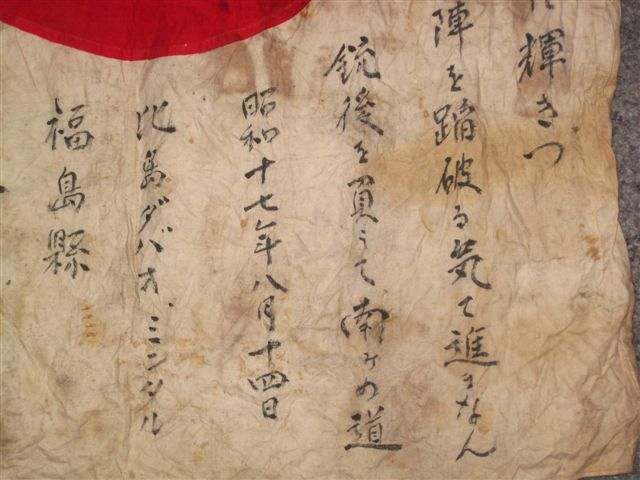 輝きつ
陣を踏破る気て進まなん
銃後を うて南 の道
昭和十七年八月十四日
比島ダバオ、ミンタル
福島縣